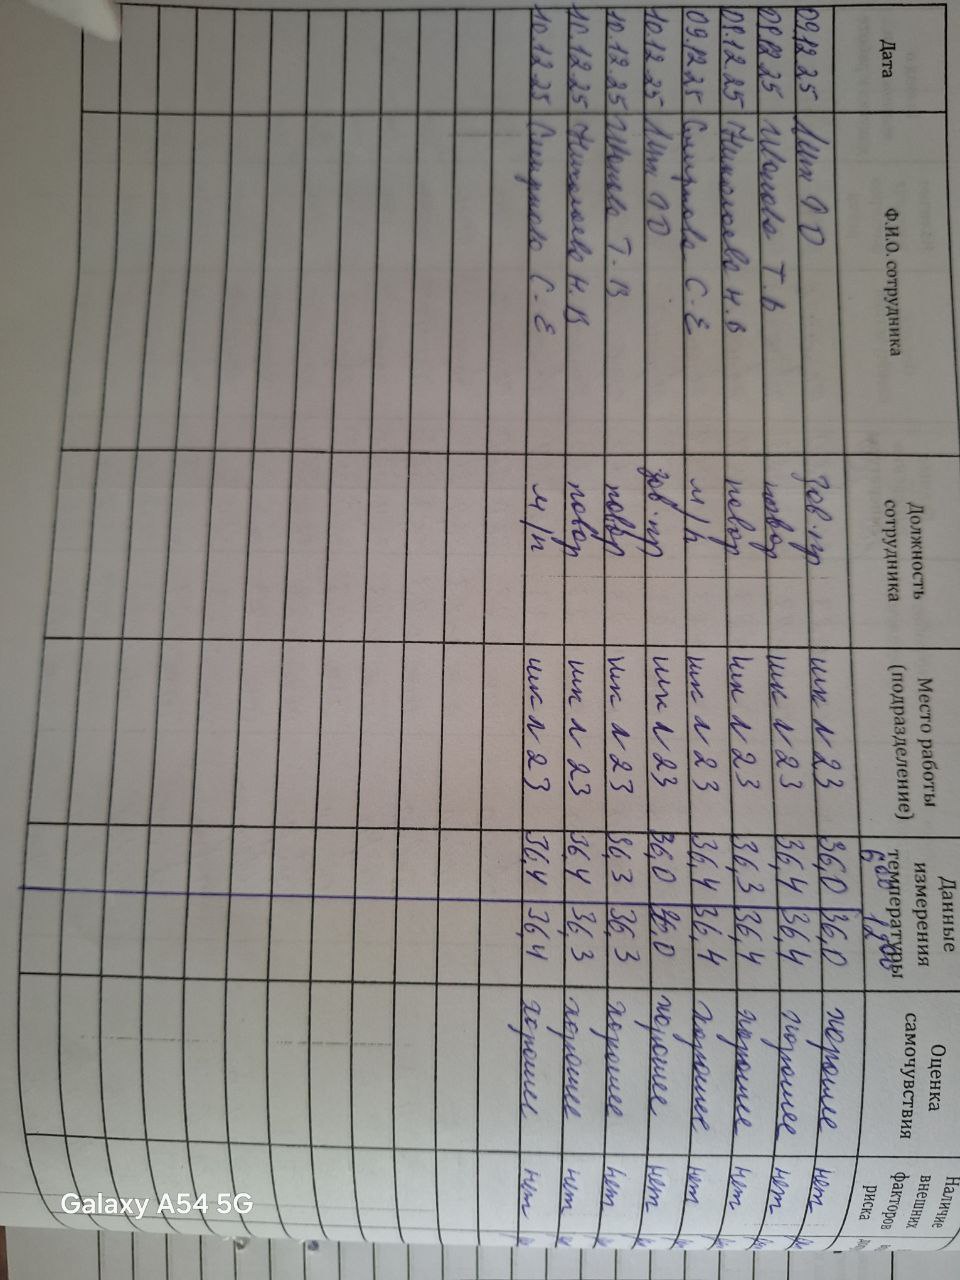 Дата Ф.И.О. сотрудника Должность сотрудника Место работы (подразделение) Данные измерения температуры 6 00 12 00 Оценка самочувствия Наличие внешних факторов риска
09.12.25 зав.пр шк N 23 36,0 36,0 хорошее нет
09.12.25 Т.В повар шк N 23 36,4 36,4 хорошее нет
09.12.25 Николаева Н.В повар шк N 23 36,3 36,4 хорошее нет
09.12.25 Смирнова С.Е м/п шк N 23 36,4 36,4 хорошее нет
10.12.25 зав.пр шк N 23 36,0 36,0 хорошее нет
10.12.25 Т.В повар шк N 23 36,3 36,3 хорошее нет
10.12.25 Николаева Н.В повар шк N 23 36,4 36,3 хорошее нет
10.12.25 Смирнова С.Е м/п шк N 23 36,4 36,4 хорошее нет
Galaxy A54 5G